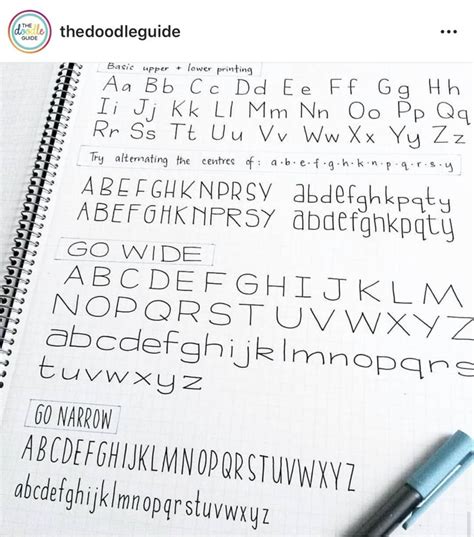 THE
doodle
GUIDE
thedoodleguide
Basic upper + lower printing
Aa Bb Cc Dd Ee Ff Gg Hh
Ii Jj Kk Ll Mm Nn Oo Pp Qq
Rr Ss Tt Uu Vv Ww Xx Yy Zz
Try alternating the centres of: a·b·e·f·g·h·k·n·p·q·r·s·y
ABEFGHKNPRSY abdefghkpqty
ABEFGHKNPRSY abdefghkpqty
GO WIDE
ABCDEFGHIJKLM
NOPQRSTUVWXYZ
abcdefghijklmnopqrs
tuvwxyz
GO NARROW
ABCDEFGHIJKLMNOPQRSTUVWXYZ
abcdefghijklmnopqrstuvwxyz